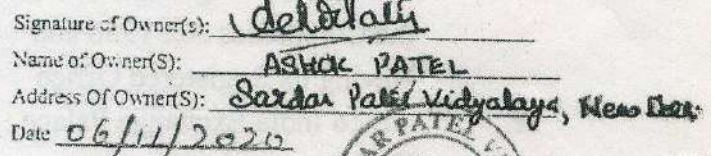 Signature of Owner(s):
Name of Owner(S): ASHOK PATEL
Address Of Owner(S): Sardar Patel Vidyalaya, New
Date 06/11/2020
AR PATEL V